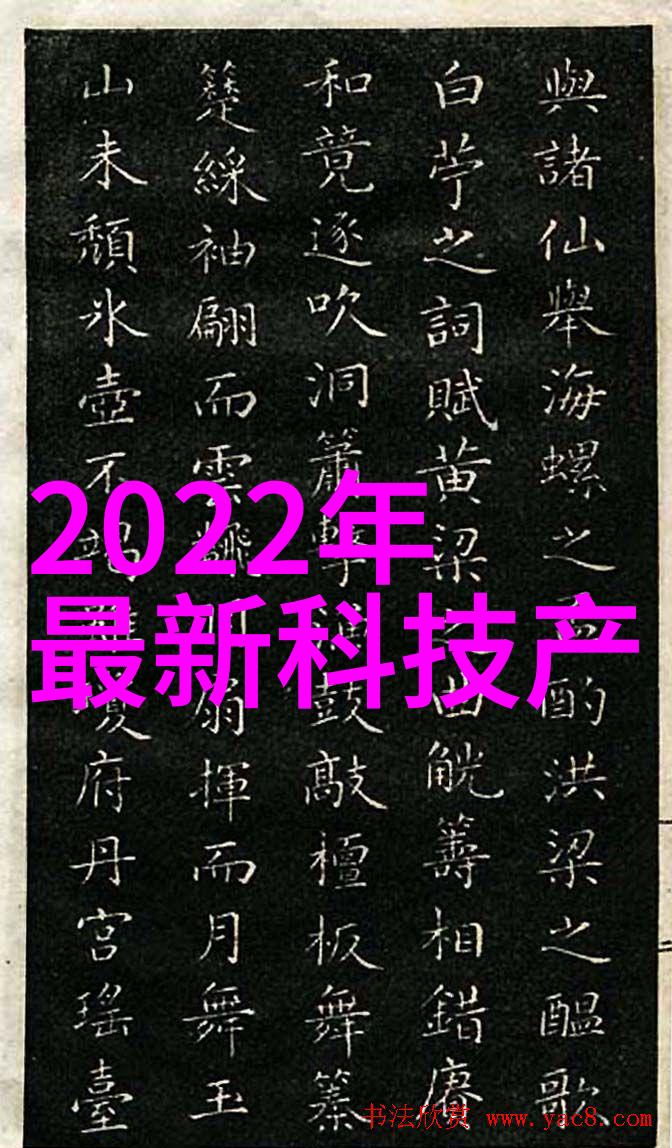 與諸仙舉海螺之酌洪梁之醞歌
白苧之詞賦黃梁之曲觥籌相錯賡
和競逐吹洞簫擊鼓敲檀板舞
綵袖翩而雲扇揮而月舞玉
山未頹氷壺不竭府丹宮瑤臺
2022年
最新科技产
书法欣赏 www.yac8.com